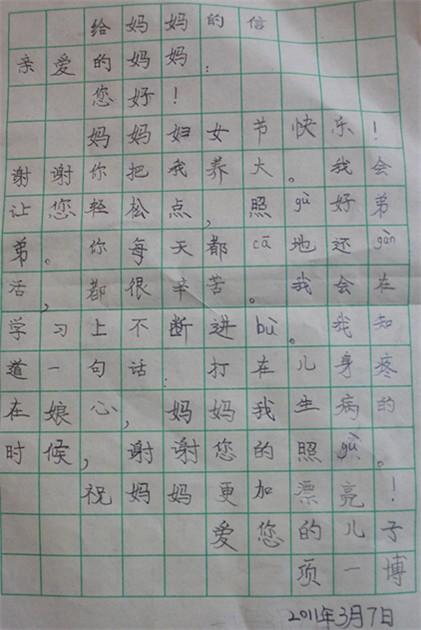 给妈妈的信
亲爱的妈妈:
您好!
妈妈妇女节快乐!
谢谢你把我养大。我会
让您轻松点,照gù好弟
弟。你每天都cā地还gàn
活,都很辛苦。我会在
学习上不断进bù。我知
道一句话:打在儿身疼
在娘心,妈妈我生病的
时候,谢谢您的照gù。
祝妈妈更加漂亮!
爱您的儿子
项一博
2011年3月7日